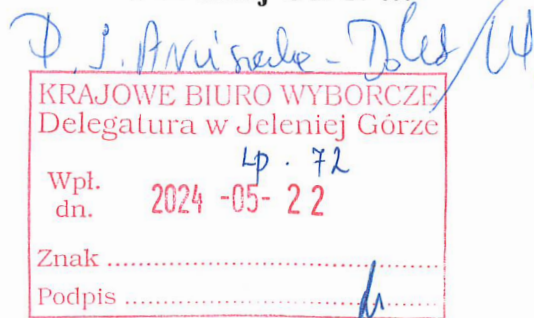 P. J.
KRAJOWE BIURO WYBORCZE
Delegatura w Jeleniej Górze
Lp. 72
Wpł.
dn. 2024 -05- 22
Znak
Podpis